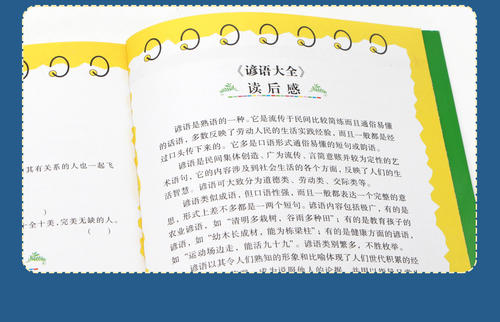 《谚语大全》
读后感
谚语是熟语的一种。它是流传于民间比较简练而且通俗易懂
的话语,多数反映了劳动人民的生活实践经验,而且一般都是经
过口头传下来的。它多是口语形式通俗易懂的短句或韵语。
谚语是民间集体创造、广为流传、言简意赅并较为定性的艺
术语句,它的内容涉及到社会生活的各个方面,反映了人们的生
活智慧。谚语可大致分为道德类、劳动类、交际类等。
谚语类似成语,但口语性强,而且一般都表达一个完整的意
思,形式上差不多都是一两个短句。谚语内容包括极广,有的是
农业谚语,如“清明多栽树,谷雨多种田”;有的是教育孩子的
谚语,如“幼木长成材,能为栋梁柱”;有的是健康方面的谚语,
如“运动场边走,能活九十九”。谚语类别繁多,不胜枚举。
谚语以其令人们熟知的形象和比喻体现了人们世代积累的经
其有关系的人也一起飞
( )
十全十美,完美无缺的人。
( )